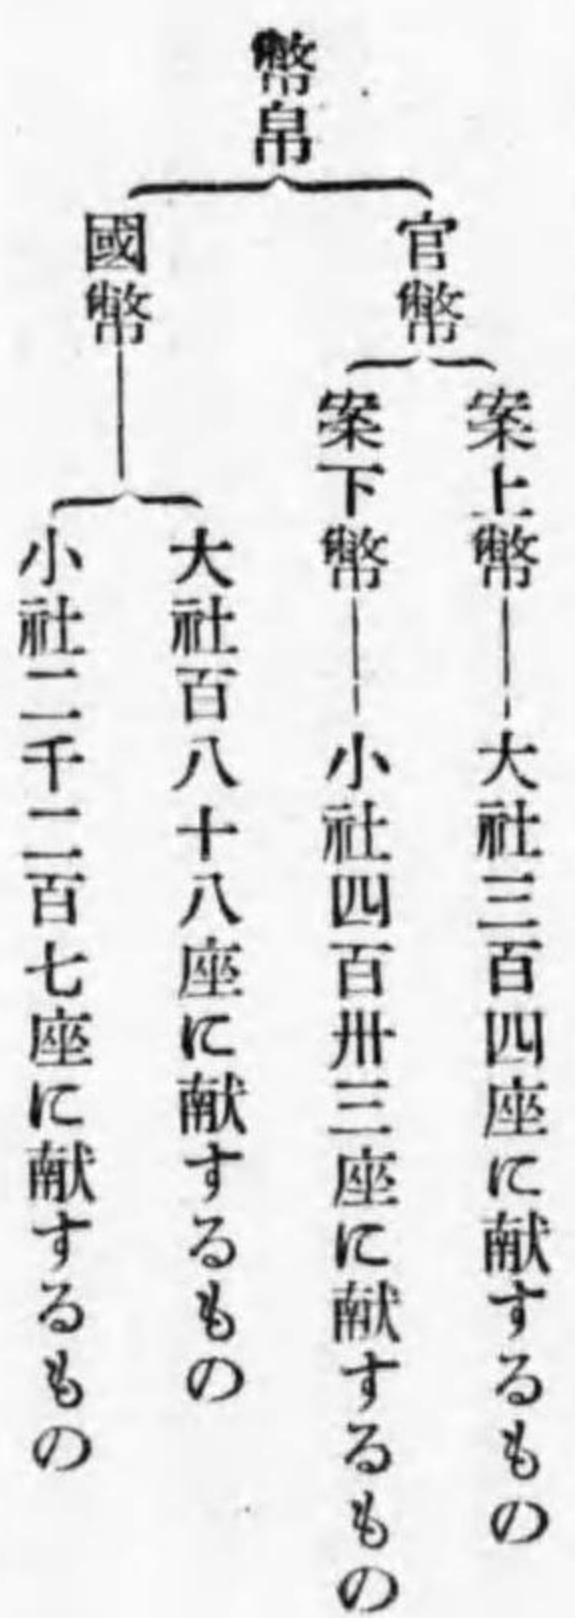 幣帛
官幣
案上幣
大社三百四座に献するもの
案下幣
小社四百卅三座に献するもの
國幣
大社百八十八座に献するもの
小社二千二百七座に献するもの